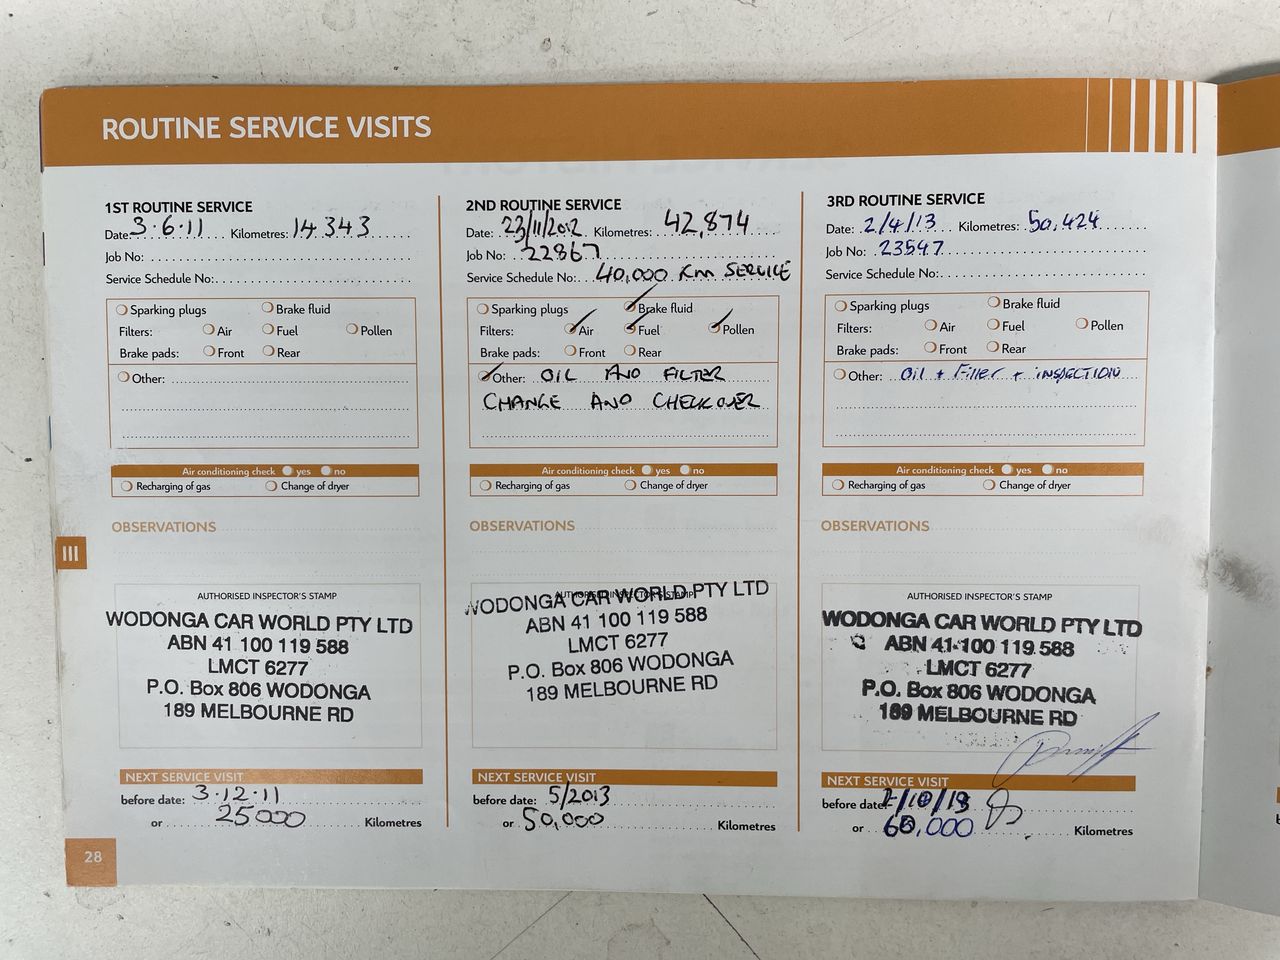 ROUTINE SERVICE VISITS
1ST ROUTINE SERVICE
Date: 3.6.11 Kilometres: 14343
Job No:
Service Schedule No:
Sparking plugs Brake fluid
Filters: Air Fuel Pollen
Brake pads: Front Rear
Other:
Air conditioning check yes no
Recharging of gas Change of dryer
OBSERVATIONS
AUTHORISED INSPECTOR'S STAMP
WODONGA CAR WORLD PTY LTD
ABN 41 100 119 588
LMCT 6277
P.O. Box 806 WODONGA
189 MELBOURNE RD
NEXT SERVICE VISIT
before date: 3.12.11
or 25000 Kilometres
2ND ROUTINE SERVICE
Date: 23/11/2012 Kilometres: 42,874
Job No: 22867
Service Schedule No: 40,000 Km SERVICE
Sparking plugs Brake fluid
Filters: Air Fuel Pollen
Brake pads: Front Rear
Other: OIL AND FILTER
CHANGE AND CHECKOVER
Air conditioning check yes no
Recharging of gas Change of dryer
OBSERVATIONS
AUTHORISED INSPECTOR'S STAMP
WODONGA CAR WORLD PTY LTD
ABN 41 100 119 588
LMCT 6277
P.O. Box 806 WODONGA
189 MELBOURNE RD
NEXT SERVICE VISIT
before date: 5/2013
or 50,000 Kilometres
3RD ROUTINE SERVICE
Date: 2/4/13 Kilometres: 50,424
Job No: 23547
Service Schedule No:
Sparking plugs Brake fluid
Filters: Air Fuel Pollen
Brake pads: Front Rear
Other: Oil + Filter + INSPECTION
Air conditioning check yes no
Recharging of gas Change of dryer
OBSERVATIONS
AUTHORISED INSPECTOR'S STAMP
WODONGA CAR WORLD PTY LTD
ABN 41 100 119 588
LMCT 6277
P.O. Box 806 WODONGA
189 MELBOURNE RD
NEXT SERVICE VISIT
before date: /10/13
or 60,000 Kilometres
III
28